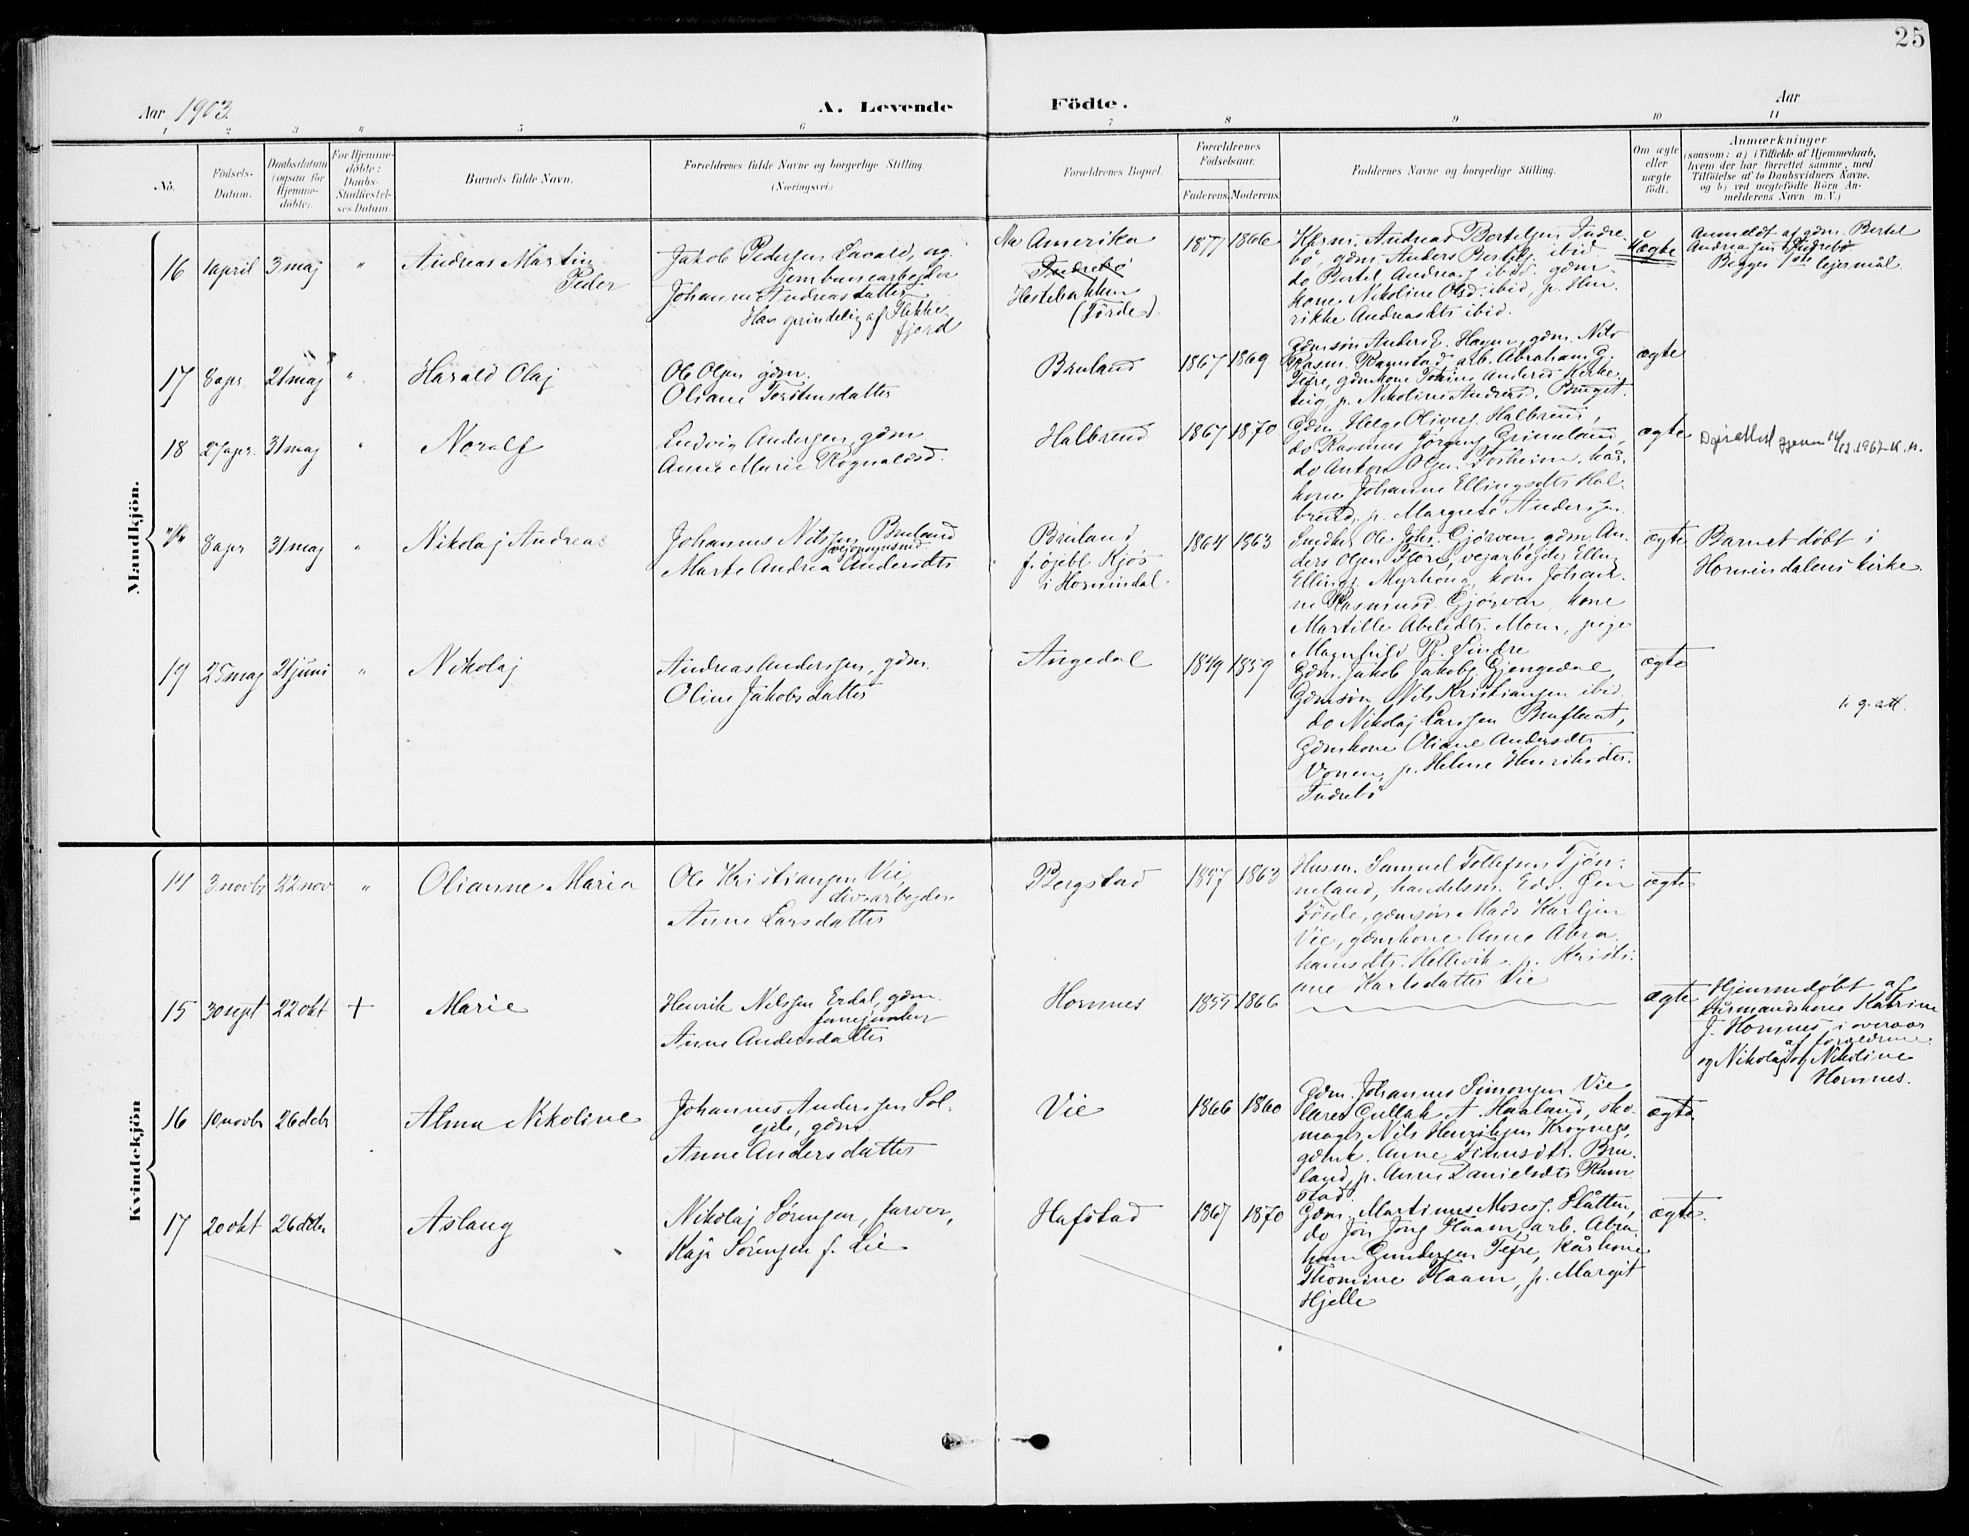 25
Aar 1903.
A. Levende
Födte.
Aar
1 2 3 4 5 6 7 8 9 10 11
No.
Födsels-
Datum.
Daabsdatum
(ogsaa for
Hjemme-
döbte).
For Hjemme-
döbte:
Daabs-
Stadfæstel-
ses Datum
Barnets fulde Navn.
Forældrenes fulde Navne og borgerlige Stilling
(Næringsvei)
Forældrenes Bopæl.
Forældrenes
Födselsaar.
Faderens
Moderens
Faddernes Navne og borgerlige Stilling.
Om ægte
eller
uægte
födt.
Anmærkninger
(saasom: a) i Tilfælde af Hjemmedaab,
hvem der har forrettet samme, med
Tilföielse af to Daabsvidners Navne,
og b) ved uægtefödte Börn An-
melderens Navn m. V.)
Mandkjön.
16 1april 3maj " Andreas Martin
Peder
Jakob Pedersen Lavold, ug.
jernbanearbejder
Johanne Andreasdatter
Han oprindelig af Flekke-
fjord
Na Amerika
Indrebö
Hestebakken
(Förde).
1877 1866
Husm. Andreas Bertelsen Indre-
bö gdm. Anders Bertels. ibid.
do Bertel Andreas. ibid. gdm.-
kone Nikoline Olsd. ibid, p. Hen-
rikke Andreasdts ibid.
uægte
Anmeldt af gdm. Bertel
Andreassen Indrebö
Begges 1ste lejermål.
17 8apr. 21maj " Harald Olaj
Ole Olsen gdm.
Oliane Torstensdatter
Bruland
1867 1869
Gdmsön Anders E. Hagen, gdm. Nils
Rasm. Ramstad, arb. Abraham G.
Tefre, gdmkone Andersd. Kirke-
teig p. Nikoline Andersd. Bruget.
ægte
18 27apr. 31maj " Noralf
Ludvig Andersen, gdm
Anne Marie Rognaldsd.
Halbrend
1867 1870
Gdm. Helge Olivers. Halbrend,
do Rasmus Jörgens. Grimeland,
do Anton Olsen Fosheim, kår-
kone Johanne Ellingsdts Hal-
brend, p. Margrete Andersen
ægte
8apr 31maj " Nikolaj Andreas
Johannes Nilssen Bruland
Marte Andrea Andersdts
Bruland
f. öjebl. Kjös
i Hornindal
1864 1863
Snedker Ole Johs. Gjörven, gdm. An-
ders Olsen Flore, vejarbejder Elling
Ellings. Myrhaug, kone Johan-
ne Rasmusd. Gjörven, kone
Martille Abelsdts. Moen, pige
Magnhild R. Sindre
ægte
Barnet döbt i
Hornindalens kirke.
19 25maj 21juni " Nikolaj
Andreas Anderssen, gdm.
Oline Jakobsdatter
Angedal
1849 1859
Gdm. Jakob Jakobs. Gjengedal,
Gdmsön Nils Kristiansen ibid.
do Nikolaj Larssen Bruflaat,
Gdmkone Oliane Andersdts
Vonen, p. Helene Henriksdts.
Indrebö
ægte
Kvindekjön
14 3novbr 22nov " Olianne Maria
Ole Kristiansen Vie
div. arbejder
Anne Larsdatter
Bergstad
1857 1863
Husm. Samuel Tollefsen Tjön-
neland, handelsm. Edv. Öen
Förde, gdmsön Mads Karlsen
Vie, gdmkone Anne Abra-
hamsdtr. Hellevik p. Kristi-
ane Karlsdatter Vie
ægte
15 30sept 22okt + Marie
Henrik Nilssen Erdal, gdm.
Anne Andersdatter
Hornnes
1855 1866
ægte
Hjemmedöbt af
kårmandskone Katrine
J. Hornnes, i overvær
af forældrene
og Nikolaj og Nikoline
Hornnes.
16 10novbr 26decbr Alma Nikoline
Johannes Anderssen Sol-
ejde, gdm.
Anne Andersdatter
Vie
1866 1860
Gdm. Johannes Simonsen Vie
lærer Gullak A. Haaland, sko-
mager Nils Henriksen Krognæs,
gdmk. Anne Simonsdtr. Bru-
land, p. Anne Danielsdts Ram-
stad.
ægte
17 20okt 26decbr Aslaug
Nikolaj Sörensen, farver,
Kaja Sörensen f. Lie
Hafstad
1867 1870
Gdm. Martinus Moses. Slåtten,
do Jon Jons. Haam, arb. Abra-
ham Gundersen Tefre, kårkone
Thomine Haam, p. Margit
Hjelle
ægte.